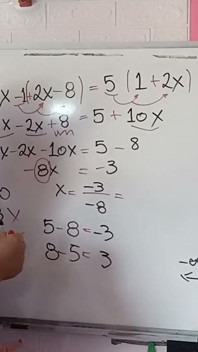 x - 1(+2x - 8) = 5 (1 + 2x)
x - 2x + 8 = 5 + 10x
x - 2x - 10x = 5 - 8
- 8x = -3
x = -3/-8 =
5 - 8 = -3
8 - 5 = 3